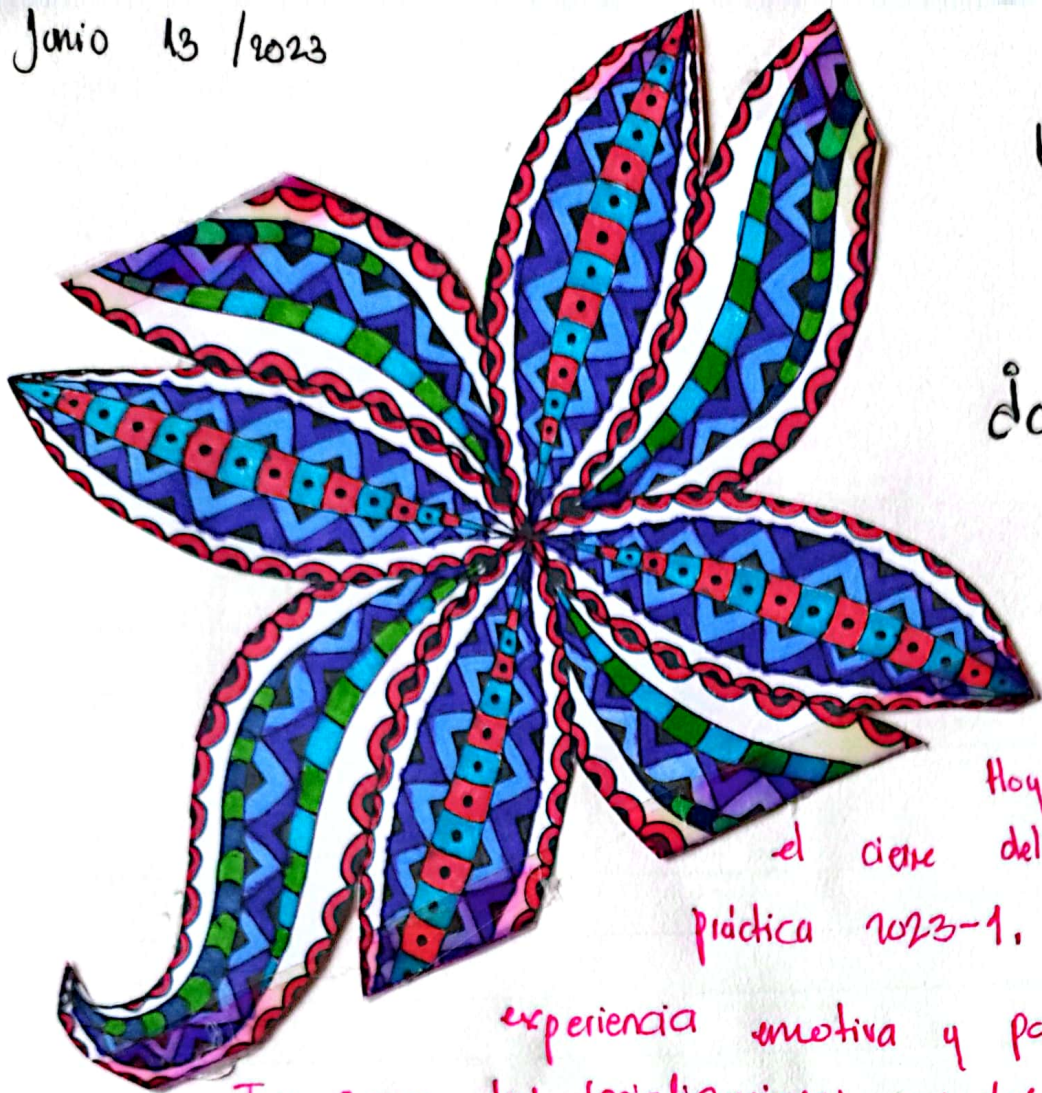 Junio 13 /2023
Hoy
el cierre del
práctica 2023-1.
experiencia emotiva y